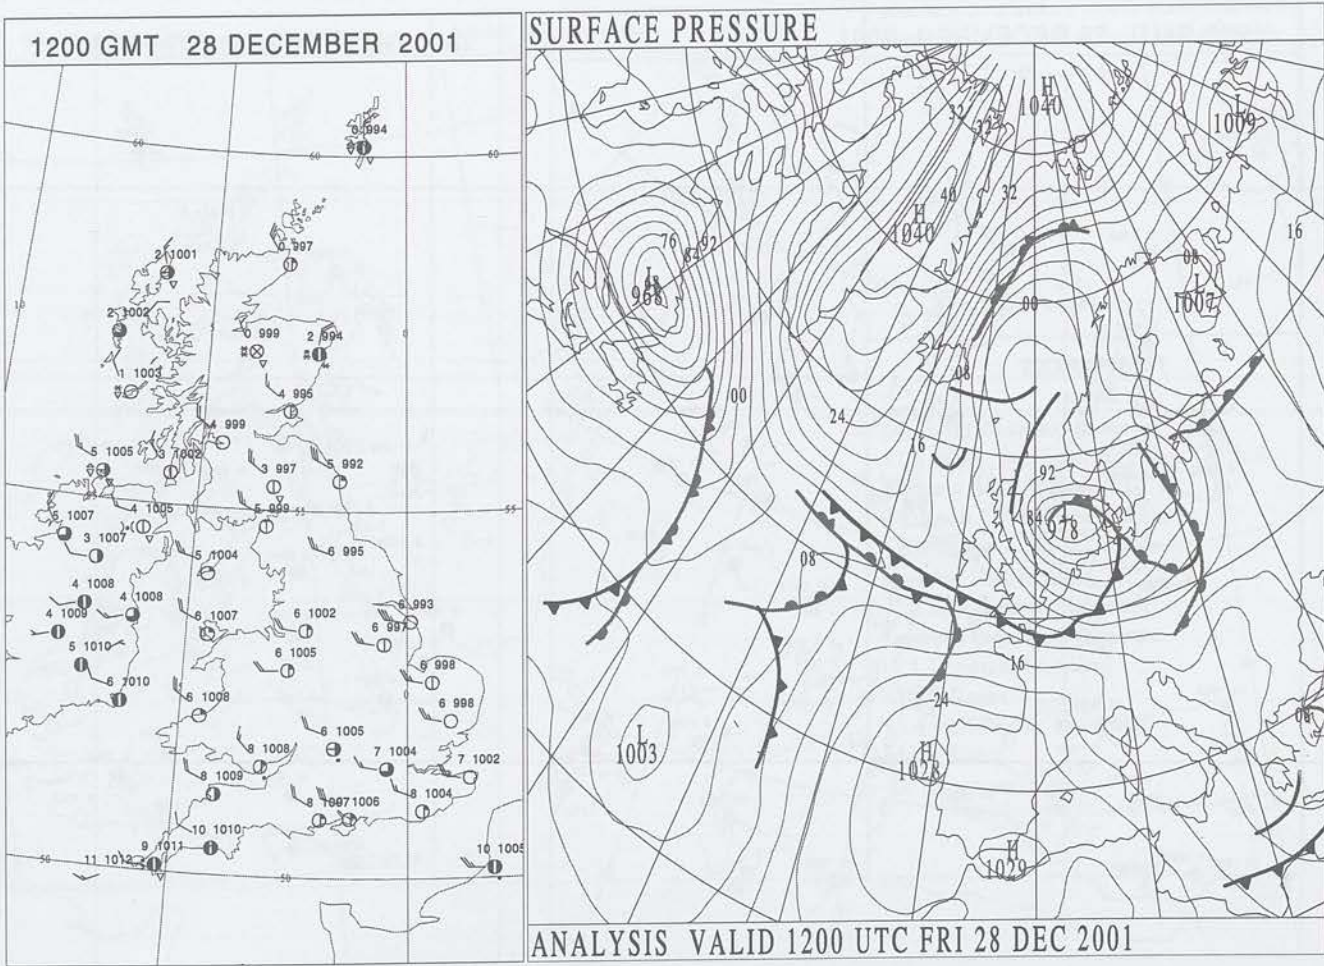 1200 GMT 28 DECEMBER 2001
60
0 994
60
60
0 997
2 1001
10
2 1002
5
0
0 999
2 994
1 1003
4 995
4 999
5 1005
3 1002
3 997
5 992
55
4 1005
5 999
55
5 1007
3 1007
5 1004
6 995
4 1008
4 1008
4 1009
6 1007
6 1002
6 993
6 997
5 1010
6 1005
6 998
6 1010
6 1008
0
6 998
6 1005
8 1008
7 1004
7 1002
8 1009
8 1007
1006
8 1004
10 1010
9 1011
11 1012
10 1005
50
50
SURFACE PRESSURE
H
1040
L
1009
32
32
40
32
H
1040
16
76
84
92
L
968
08
L
1007
00
08
00
24
16
92
84
L
978
08
16
24
L
1003
H
1028
08
H
1029
ANALYSIS VALID 1200 UTC FRI 28 DEC 2001